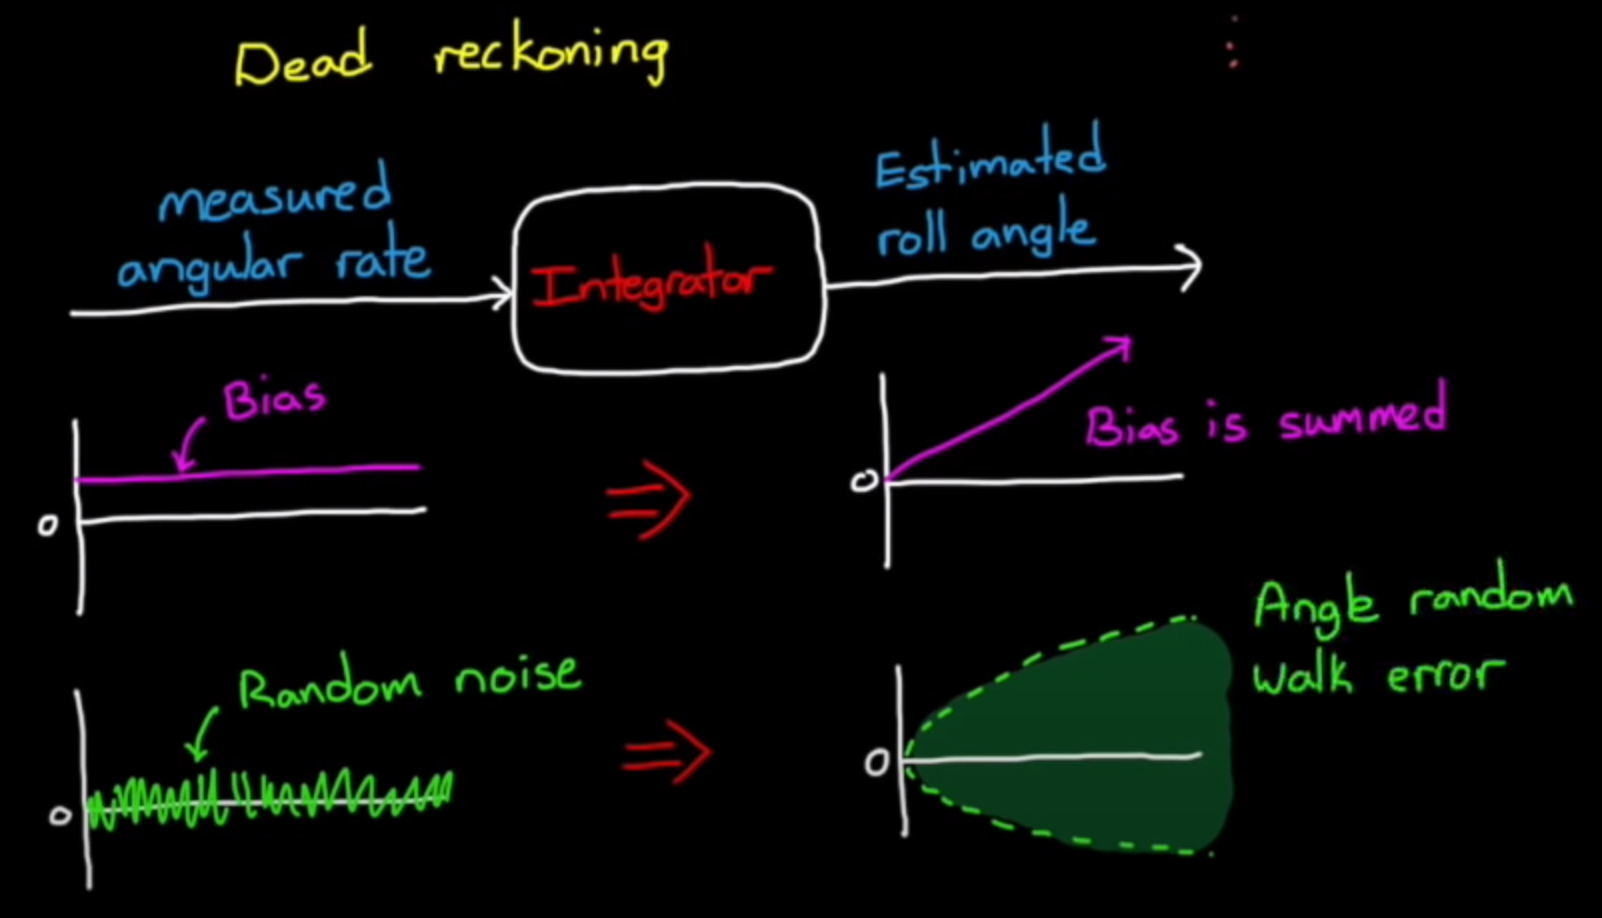 Dead reckoning
measured
angular rate
Integrator
Estimated
roll angle
Bias
0
Bias is summed
0
Random noise
0
Angle random
walk error
0